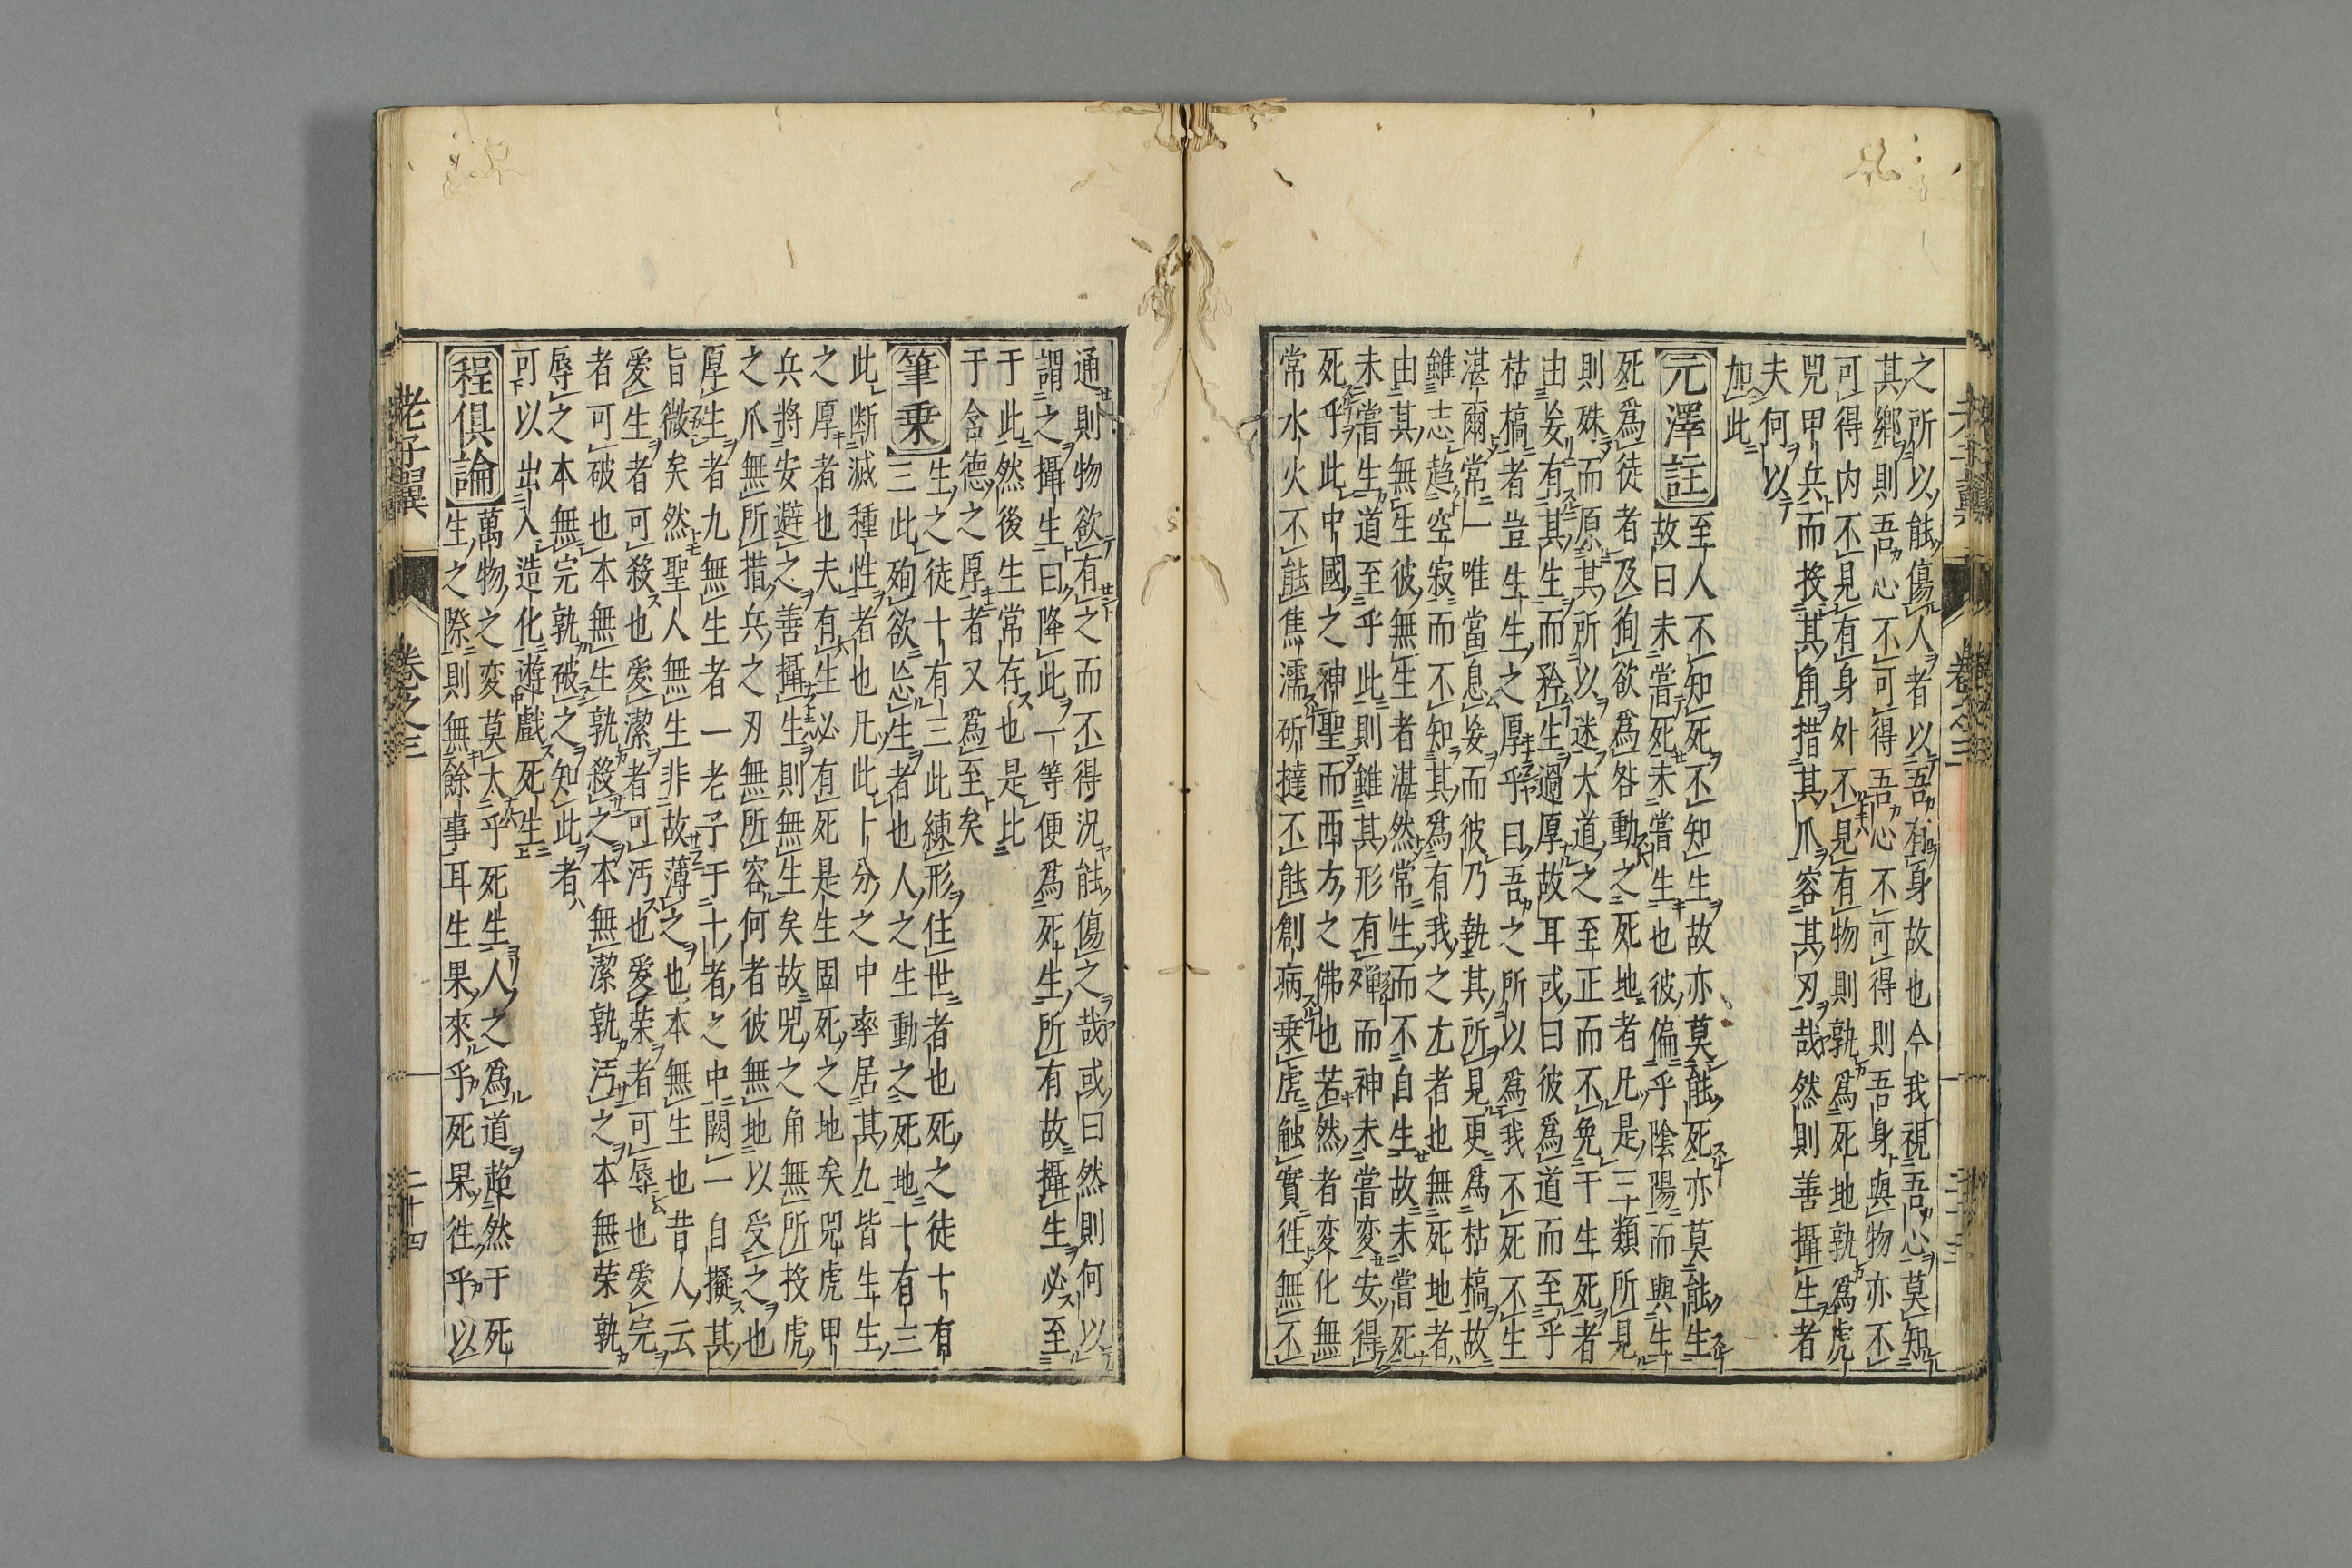 之所以能傷人者以吾有身故也今我視吾心莫知
其鄉則吾心不可得吾心不可得則吾身與物亦不
可得内不見有身外不見有物則孰爲死地孰爲虎
兕甲兵而投其角措其爪容其刃哉然則善攝生者
夫何以
加此
元澤註
至人不知死不知生故亦莫能死亦莫能生
故曰未嘗死未嘗生也彼偏乎陰陽而與生
死爲徒者及徇欲爲咎動之死地者凡是三類所見
則殊而原其所以迷大道之至正而不免于生死者
由妄有其生而矜生過厚故耳或曰彼爲道而至乎
枯槁者豈生生之厚乎曰吾之所以爲我不死不生
湛爾常一唯當息妄而彼乃執其所見更爲枯槁故
雖志趋空寂而不知其爲有我之尤者也無死地者
由其無生彼無生者湛然常生而不自生故未嘗死
未嘗生道至乎此則雖其形有殫而神未嘗変安得
死乎此中國之神聖而西方之佛也若然者変化無
常水火不能焦濡斫撻不能創病乗虛触實徃無不
通則物欲有之而不得況能傷之哉或曰然則何以
謂之攝生曰降此一等便爲死生所有故攝生必至
于此然後生常存也是比
于含德之厚者又爲至矣
筆乗
生之徒十有三此練形住世者也死之徒十有
三此殉欲忘生者也人之生動之死地十有三
此断滅種性者也凡此十分之中率居其九皆生生
之厚者也夫有生必有死是生固死之地矣兕虎甲
兵將安避之善攝生則無生矣故兕之角無所投虎
之爪無所措兵之刃無所容何者彼無地以受之也
厚生者九無生者一老子于十者之中闕一自擬其
旨微矣然聖人無生非故薄之也本無生也昔人云
愛生者可殺也愛潔者可汚也愛荣者可辱也愛完
者可破也本無生孰殺之本無潔孰汚之本無荣孰
辱之本無完孰破之知此者
可以出入造化遊戲死生
程俱論
萬物之変莫大乎死生人之爲道趋然于死
生之際則無餘事耳生果來乎死果徃乎以
老子翼
卷之三
二十四